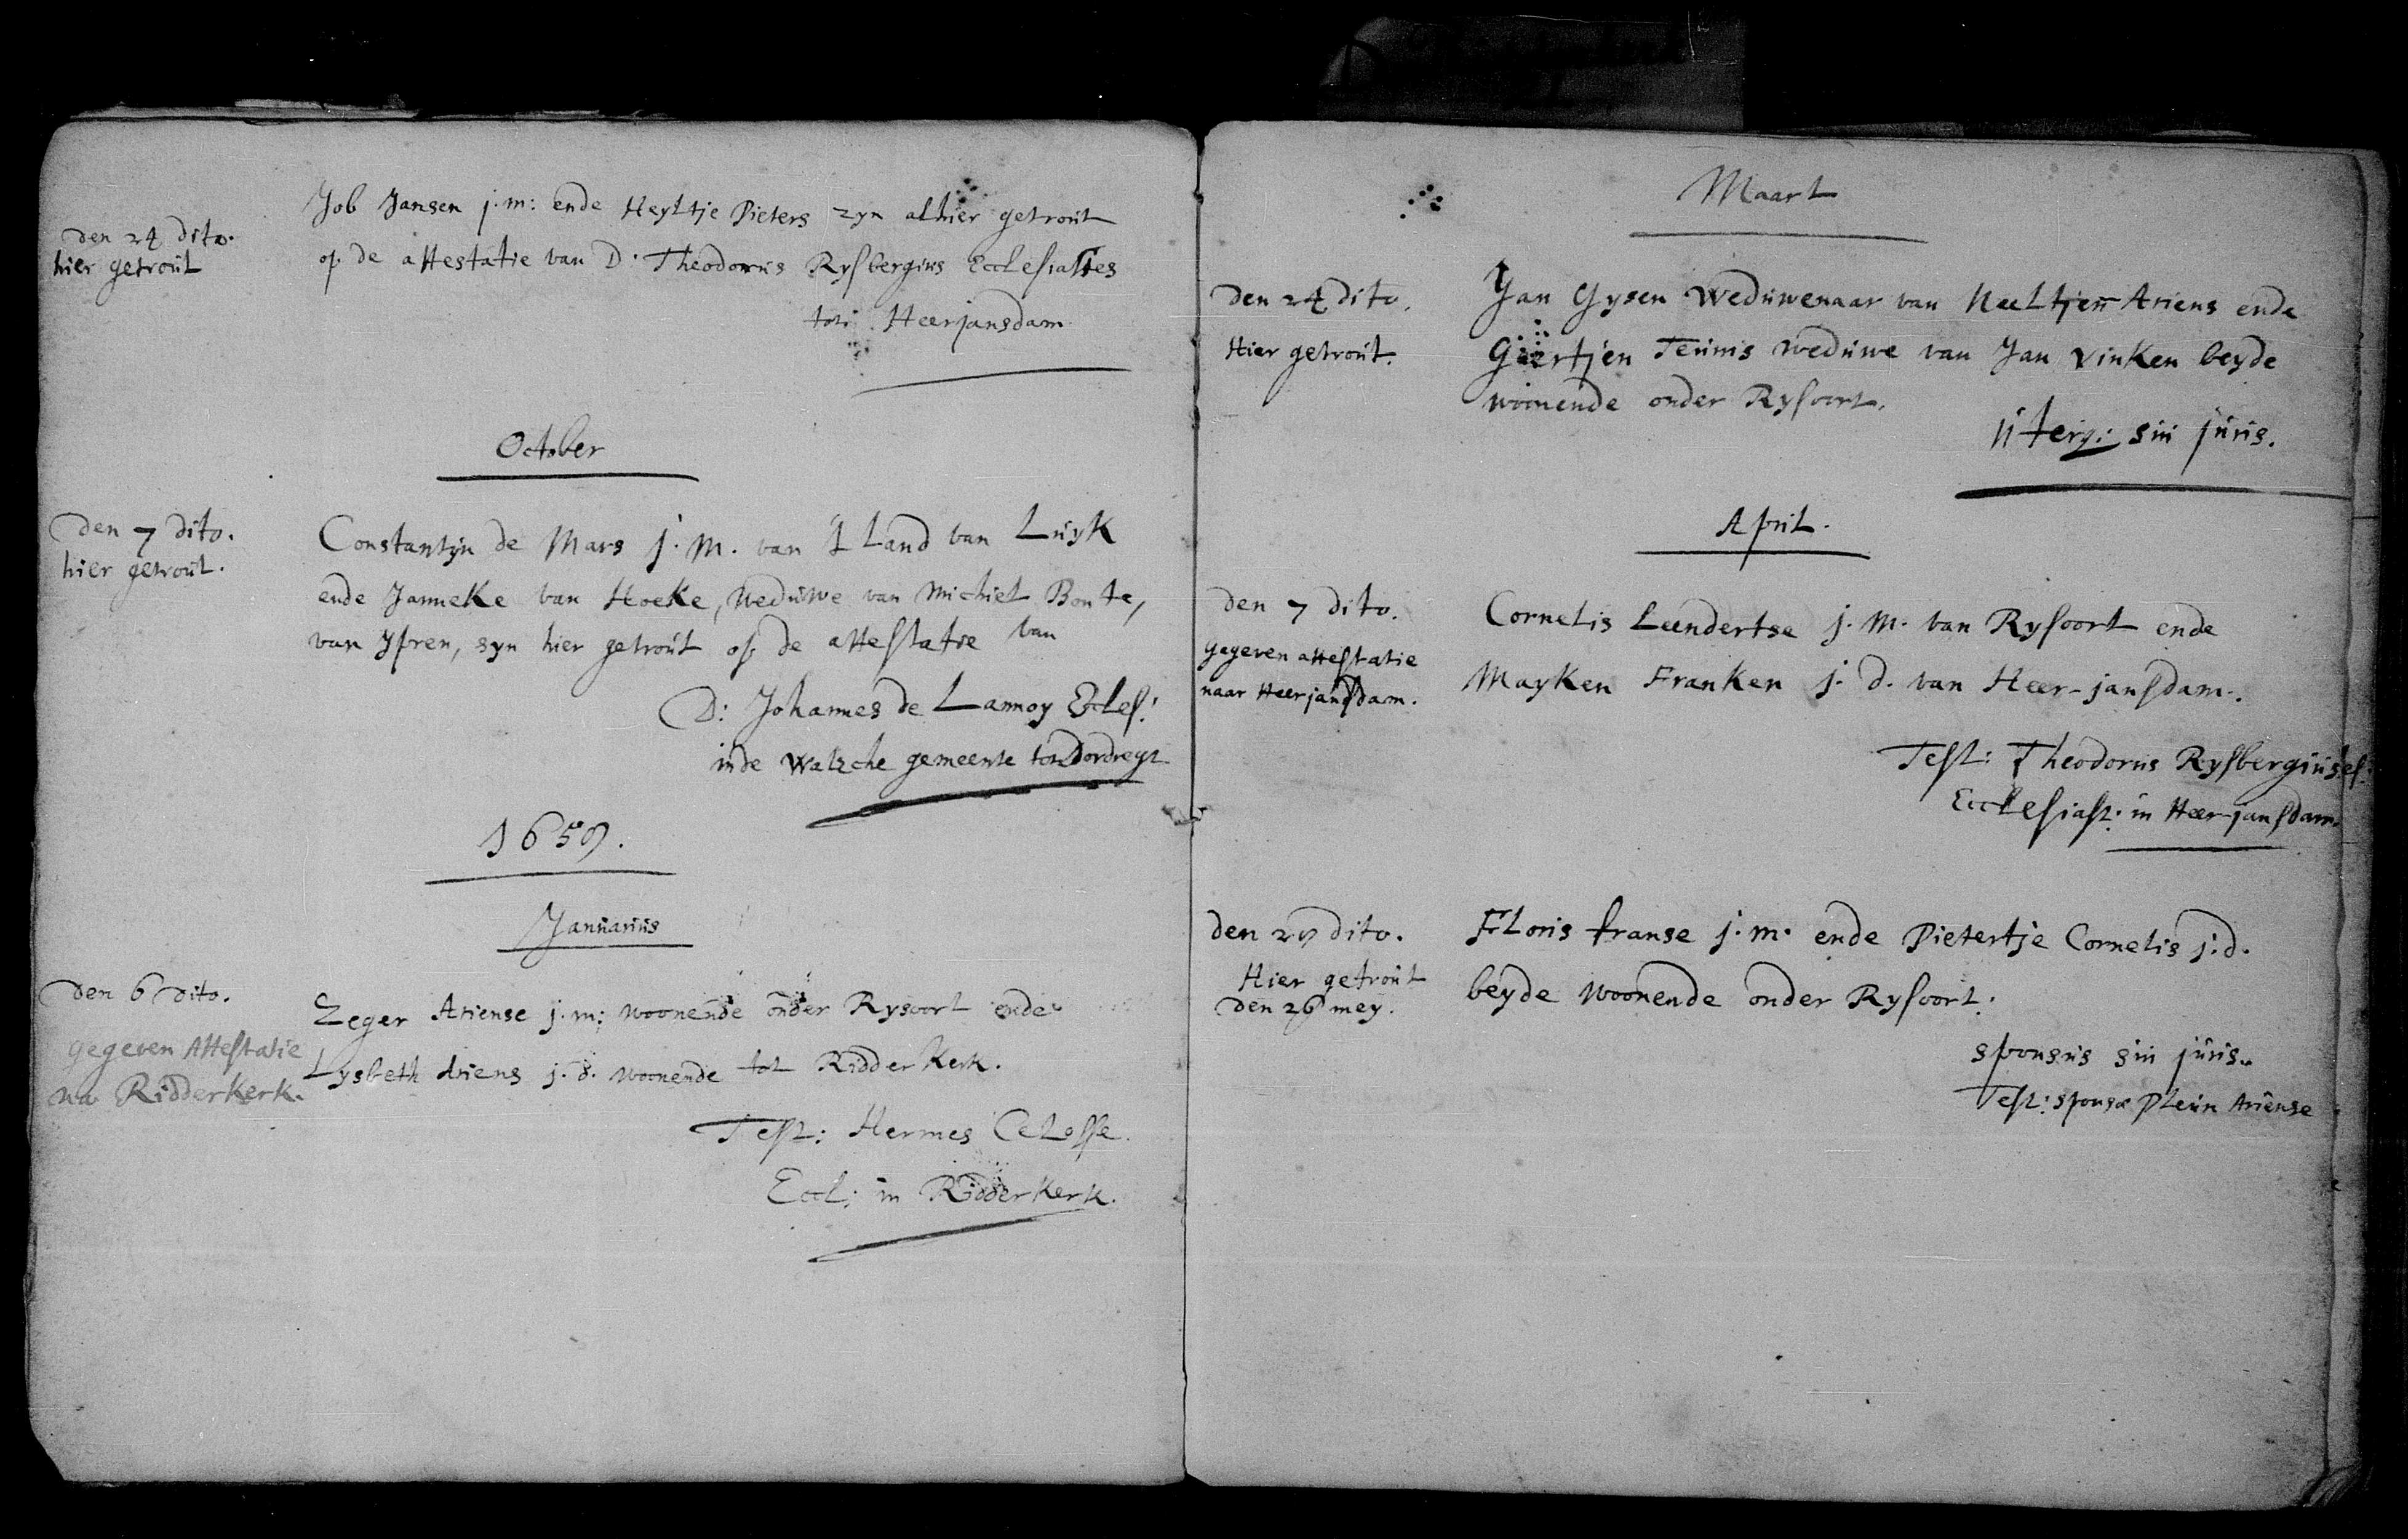 den 24 dito.
hier getrout
Job Jansen j.m: ende Heyltje Pieters zyn alhier getrout
op de attestatie van D. Theodorus Rysbergius Ecclesiastes
tot Heerjansdam
October
den 7 dito.
hier getrout.
Constantyn de Mars j.M. van 't Land van Luyk
ende Janneke van Hoeke, weduwe van Michiel Bonte,
van Ypren, syn hier getrout op de attestatie van
D: Johannes de Lannoy Eccles:
in de Walsche gemeente tot Dordregt
1659.
Januarius
den 6 dito.
gegeven Attestatie
na Ridderkerk.
Zeger Ariense j.m: woonende onder Rysoort ende
Lysbeth Ariens j.d. woonende tot Ridderkerk.
Test: Hermes Celosse.
Eccl: in Ridderkerk.
Maart
den 24 dito.
Hier getrout.
Jan Gysen Weduwenaar van Neeltjen Ariens ende
Geertjen Teunis weduwe van Jan Vinken beyde
woonende onder Rysoort.
uterq: sui juris.
April.
den 7 dito.
gegeven attestatie
naar Heerjansdam.
Cornelis Leendertse j.M. van Rysoort ende
Mayken Franken j.d. van Heer-jansdam.
Test: Theodorus Rysbergius
Ecclesiast: in Heer-jansdam.
den 27 dito.
Hier getrout
den 26 mey.
Floris franse j.m. ende Pietertje Cornelis j.d.
beyde woonende onder Rysoort.
sponsus sui juris.
Test: sponsæ Pleun Ariense